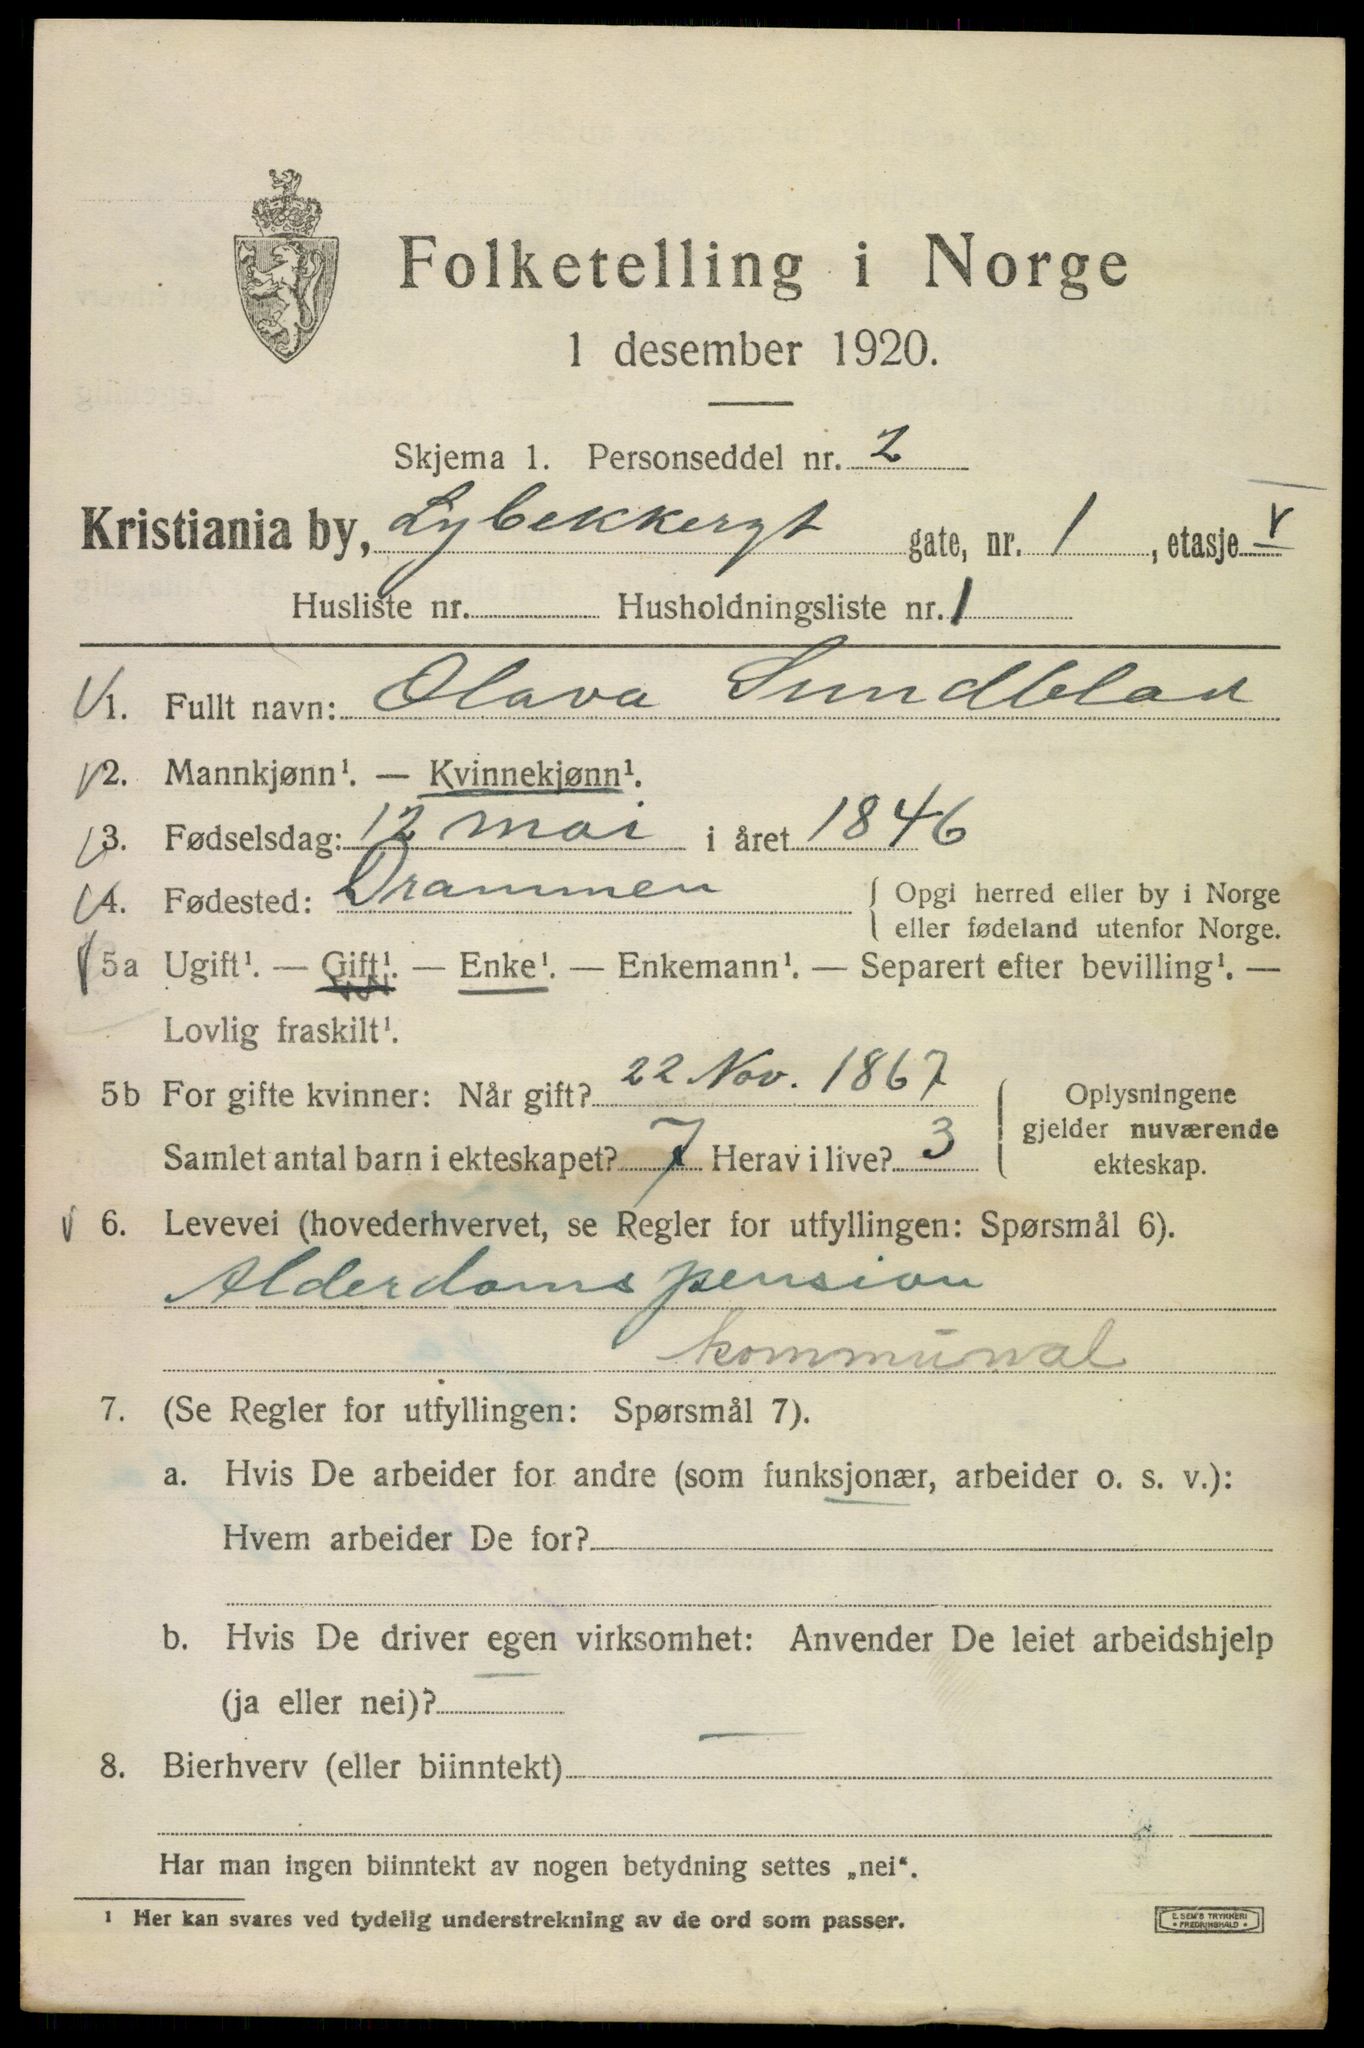 Folketelling i Norge
1 desember 1920.
Skjema 1. Personseddel nr. 2
Kristiania by, Lybekkergt gate, nr. 1, etasje V
Husliste nr. Husholdningsliste nr. 1
1. Fullt navn: Olava Sundblad
2. Mannkjønn¹. — Kvinnekjønn¹.
3. Fødselsdag: 12 mai i året 1846
4. Fødested: Drammen { Opgi herred eller by i Norge
eller fødeland utenfor Norge.
5a Ugift¹. — Gift¹. — Enke¹. — Enkemann¹. — Separert efter bevilling¹. —
Lovlig fraskilt¹.
5b For gifte kvinner: Når gift? 22 Nov. 1867
Samlet antal barn i ekteskapet? 7 Herav i live? 3
{ Oplysningene
gjelder nuværende
ekteskap.
6. Levevei (hovederhvervet, se Regler for utfyllingen: Spørsmål 6).
Alderdomspension
kommunal
7. (Se Regler for utfyllingen: Spørsmål 7).
a. Hvis De arbeider for andre (som funksjonær, arbeider o. s. v.):
Hvem arbeider De for?
b. Hvis De driver egen virksomhet: Anvender De leiet arbeidshjelp
(ja eller nei)?
8. Bierhverv (eller biinntekt)
Har man ingen biinntekt av nogen betydning settes „nei“.
¹ Her kan svares ved tydelig understrekning av de ord som passer.
E. SEM'S TRYKKERI
• FREDRIKSHALD •